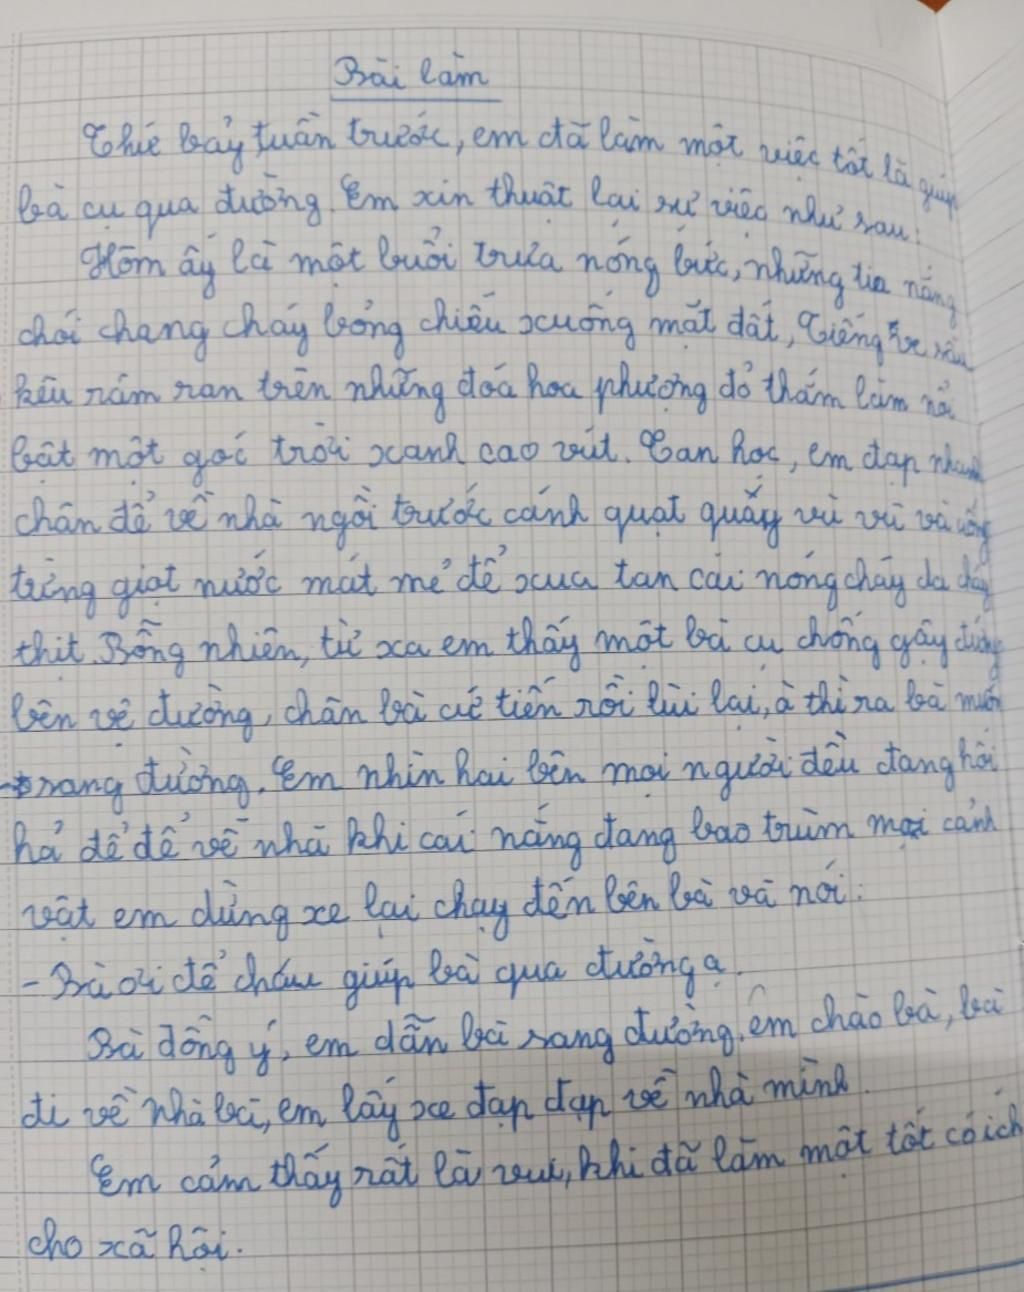 Bài làm
Thứ bảy tuần trước, em đã làm một việc tốt là giúp
bà cụ qua đường. Em xin thuật lại sự việc như sau:
Hôm ấy là một buổi trưa nóng bức, những tia nắng
chói chang cháy bỏng chiếu xuống mặt đất, Tiếng ve sầu
kêu râm ran trên những đoá hoa phượng đỏ thắm làm nổi
bật một góc trời xanh cao vút. Tan học, em đạp nhanh
chân để về nhà ngồi trước cánh quạt quay vù vù và uống
từng giọt nước mát mẻ để xua tan cái nóng cháy da cháy
thịt. Bỗng nhiên, từ xa em thấy một bà cụ chống gậy đứng
bên vệ đường, chân bà cứ tiến rồi lùi lại, à thì ra bà muốn
sang đường. Em nhìn hai bên mọi người đều đang hối
hả để để về nhà khi cái nắng đang bao trùm mọi cảnh
vật em dừng xe lại chạy đến bên bà và nói:
- Bà ơi để cháu giúp bà qua đường ạ.
Bà đồng ý, em dẫn bà sang đường, em chào bà, bà
đi về nhà bà, em lấy xe đạp đạp về nhà mình.
Em cảm thấy rất là vui, khi đã làm một tốt có ích
cho xã hội.